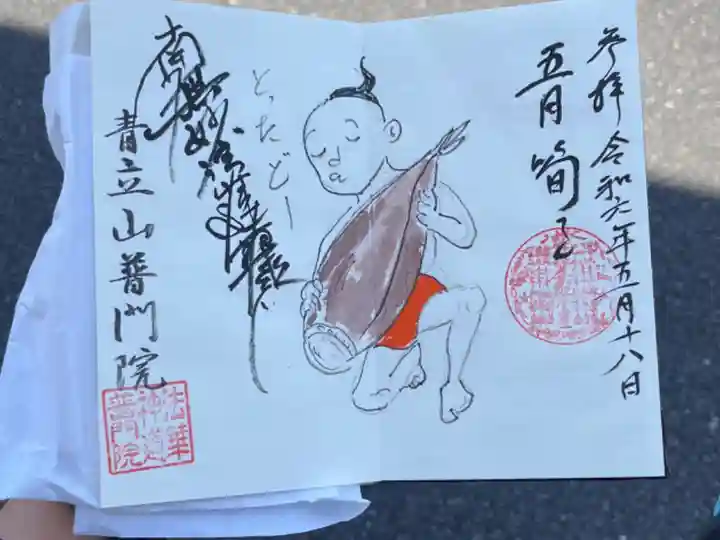 参拝 令和元年五月十八日
五月 筍
とったどー
南無妙法蓮華経
青立山普門院
法華
神道
普門院